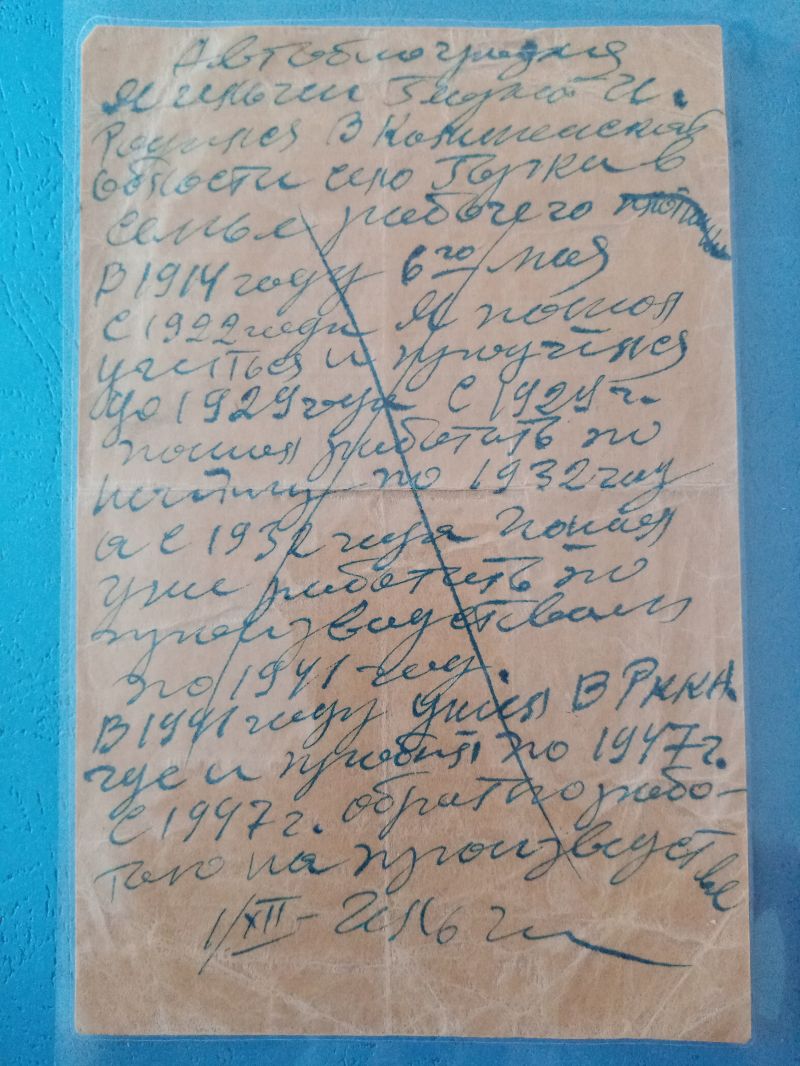 Автобиография
Я Ильчи И.
Родился В Калининской
области село Горки в
семье рабочего
В 1914 году 6го мая
С 1922 года Я пошол
учиться и проучился
до 1929 года С 1929 г.
пошол работать по
найму по 1932 год
а С 1932 года пошол
уже работать по
производствам
по 1941 год.
В 1941 году ушол В РККА
где и пробыл по 1947 г.
С 1947 г. обратно рабо-
таю на производстве
1/XII- Ильчи